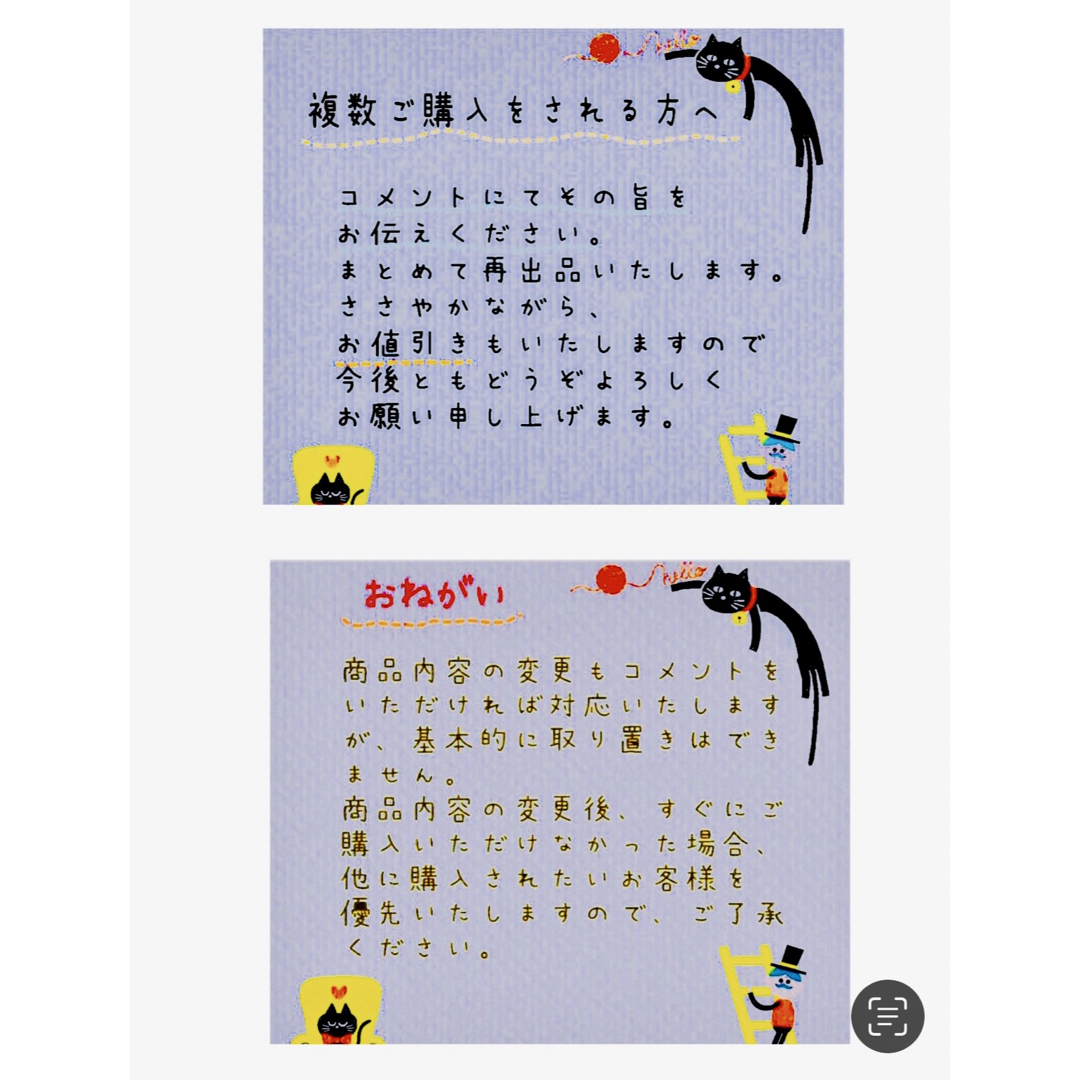 hello
複数ご購入をされる方へ
コメントにてその旨を
お伝えください。
まとめて再出品いたします。
ささやかながら、
お値引きもいたしますので
今後ともどうぞよろしく
お願い申し上げます。
hello
おねがい
商品内容の変更もコメントを
いただければ対応いたします
が、基本的に取り置きはでき
ません。
商品内容の変更後、すぐにご
購入いただけなかった場合、
他に購入されたいお客様を
優先いたしますので、ご了承
ください。